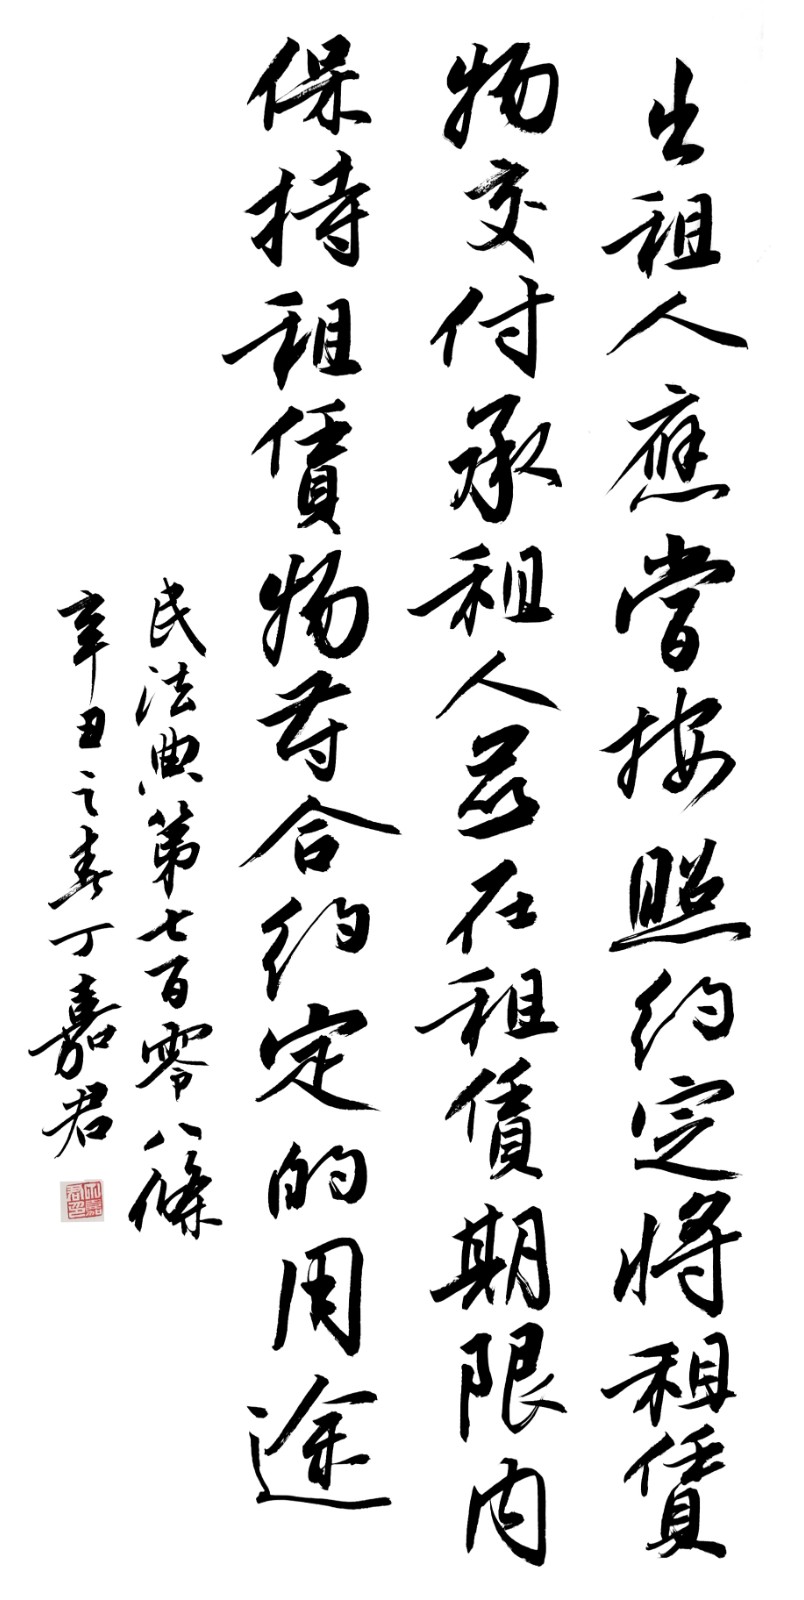 出租人應當按照約定將租賃
物交付承租人并在租賃期限内
保持租賃物符合約定的用途
民法典第七百零八條
辛丑之春丁嘉君